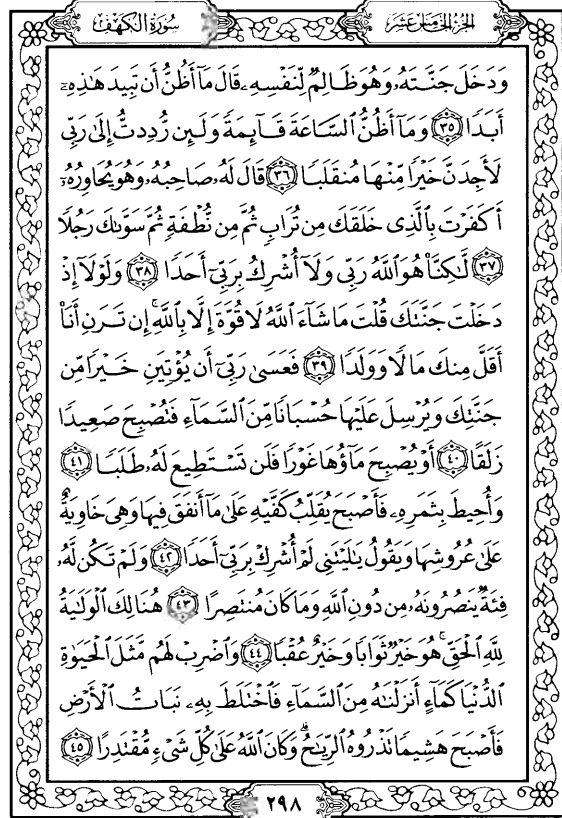 سُورَةُ الكَهْفِ
الجُزْءُ الخَامِسَ عَشَرَ
وَدَخَلَ جَنَّتَهُۥ وَهُوَ ظَالِمٌ لِّنَفْسِهِۦ قَالَ مَآ أَظُنُّ أَن تَبِيدَ هَـٰذِهِۦٓ
أَبَدًا ٣٥ وَمَآ أَظُنُّ ٱلسَّاعَةَ قَآئِمَةً وَلَئِن رُّدِدتُّ إِلَىٰ رَبِّى
لَأَجِدَنَّ خَيْرًا مِّنْهَا مُنقَلَبًا ٣٦ قَالَ لَهُۥ صَاحِبُهُۥ وَهُوَ يُحَاوِرُهُۥٓ
أَكَفَرْتَ بِٱلَّذِى خَلَقَكَ مِن تُرَابٍ ثُمَّ مِن نُّطْفَةٍ ثُمَّ سَوَّىٰكَ رَجُلًا
٣٧ لَّـٰكِنَّا۠ هُوَ ٱللَّهُ رَبِّى وَلَآ أُشْرِكُ بِرَبِّىٓ أَحَدًا ٣٨ وَلَوْلَآ إِذْ
دَخَلْتَ جَنَّتَكَ قُلْتَ مَا شَآءَ ٱللَّهُ لَا قُوَّةَ إِلَّا بِٱللَّهِ ۚ إِن تَرَنِ أَنَا۠
أَقَلَّ مِنكَ مَالًا وَوَلَدًا ٣٩ فَعَسَىٰ رَبِّىٓ أَن يُؤْتِيَنِ خَيْرًا مِّن
جَنَّتِكَ وَيُرْسِلَ عَلَيْهَا حُسْبَانًا مِّنَ ٱلسَّمَآءِ فَتُصْبِحَ صَعِيدًا
زَلَقًا ٤٠ أَوْ يُصْبِحَ مَآؤُهَا غَوْرًا فَلَن تَسْتَطِيعَ لَهُۥ طَلَبًا ٤١
وَأُحِيطَ بِثَمَرِهِۦ فَأَصْبَحَ يُقَلِّبُ كَفَّيْهِ عَلَىٰ مَآ أَنفَقَ فِيهَا وَهِىَ خَاوِيَةٌ
عَلَىٰ عُرُوشِهَا وَيَقُولُ يَـٰلَيْتَنِى لَمْ أُشْرِكْ بِرَبِّىٓ أَحَدًا ٤٢ وَلَمْ تَكُن لَّهُۥ
فِئَةٌ يَنصُرُونَهُۥ مِن دُونِ ٱللَّهِ وَمَا كَانَ مُنتَصِرًا ٤٣ هُنَالِكَ ٱلْوَلَـٰيَةُ
لِلَّهِ ٱلْحَقِّ ۚ هُوَ خَيْرٌ ثَوَابًا وَخَيْرٌ عُقْبًا ٤٤ وَٱضْرِبْ لَهُم مَّثَلَ ٱلْحَيَوٰةِ
ٱلدُّنْيَا كَمَآءٍ أَنزَلْنَـٰهُ مِنَ ٱلسَّمَآءِ فَٱخْتَلَطَ بِهِۦ نَبَاتُ ٱلْأَرْضِ
فَأَصْبَحَ هَشِيمًا تَذْرُوهُ ٱلرِّيَـٰحُ ۗ وَكَانَ ٱللَّهُ عَلَىٰ كُلِّ شَىْءٍ مُّقْتَدِرًا ٤٥
٢٩٨